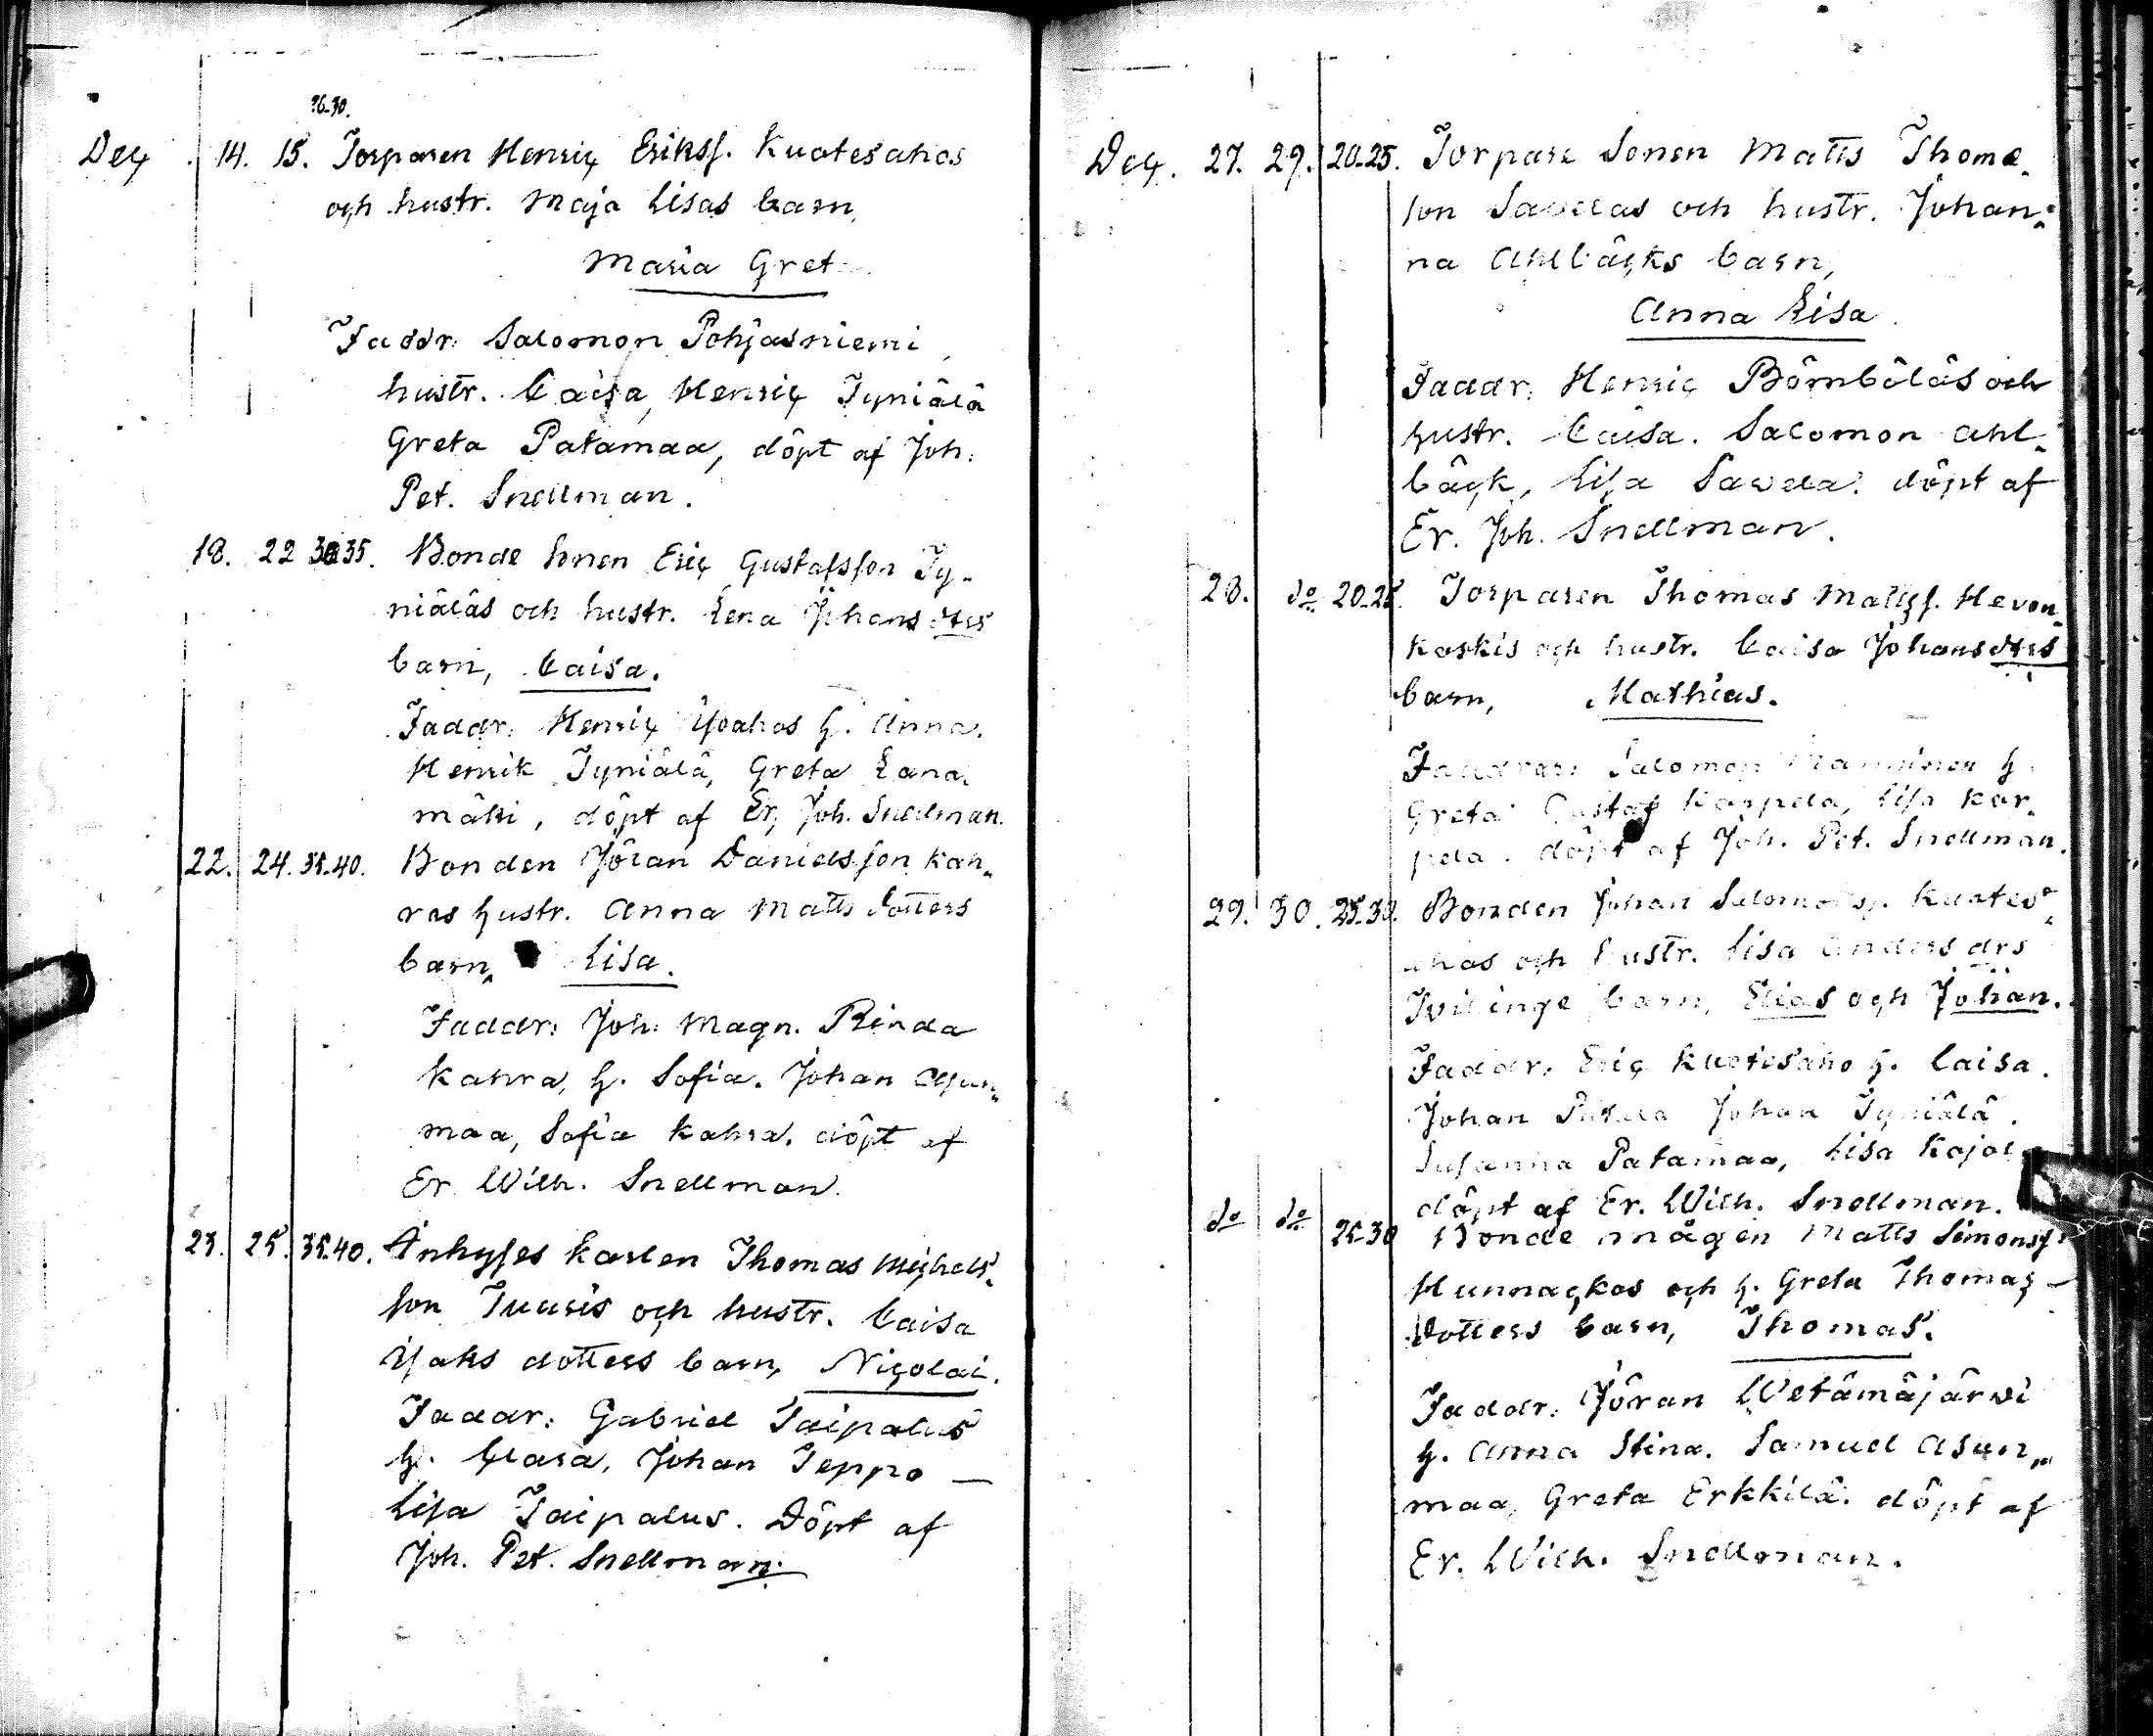 26-30.
Dec. 14. 15. Torparen Henric Erikss. Kuotesahos
och hustr. Maja Lisas barn,
Maria Gret
Faddr. Salomon Pohjasniemi,
hustr. Caisa, Henric Tyniälä
Greta Patamaa, döpt af Joh.
Pet. Snellman.
18. 22 30-35. Bonde Sonen Eric Gustafsson Ty-
niäläs och hustr. Lena Johans dtrs
barn, Caisa.
Faddr. Henric h. Anna.
Henrik Tyniälä, Greta Lana
mäki, döpt af Er. Joh. Snellman.
22. 24. 35-40. Bonden Jöran Danielsson Kah-
ras hustr. Anna Matts dotters
barn, Lisa.
Faddr: Joh. Magn. Rinda
Kahra, h. Sofia. Johan Asun-
maa, Sofia Kahra. döpt af
Er. Wilh. Snellman.
23. 25. 35-40. Inhyses karlen Thomas Michels-
son Tuuris och hustr. Caisa
Isaks dotters barn, Nicolai.
Faddr: Gabriel Taipalus
h. Clara, Johan Teppo —
Lisa Taipalus. Döpt af
Joh. Pet. Snellman.
Dec. 27. 29. 20-25. Torpare Sonen Matts Thome-
son Sawelas och hustr. Johan-
na Ahlbäcks barn,
Anna Lisa.
Faddr. Henric Bömböläs och
hustr. Caisa. Salomon Ahl-
bäck, Lisa Sawela. döpt af
Er. Joh. Snellman.
28. do 20-25. Torparen Thomas Matss. Hevon-
koskis och hustr. Caisa Johans dtrs
barn, Mathias.
Faddrar: Salomon h.
Greta Gustaf Karpela, Lisa Kar-
pela. döpt af Joh. Pet. Snellman.
29. 30. 25-30. Bonden Johan Salomonss. Kuotes-
ahos och hustr. Lisa Anders drs
Tvilinge barn, Elias och Johan.
Faddr. Eric Kuotesaho h. Caisa.
Johan Johan Tyniälä.
Susanna Patamaa, Lisa
döpt af Er. Wilh. Snellman.
do do 25-30 Bonde mågen Matts Simonss.
Hunnackos och h. Greta Thomas-
dotters barn, Thomas.
Faddr: Jöran Wetämäjärwi
h. Anna Stina. Samuel Asun-
maa, Greta Erkkilä. döpt af
Er. Wilh. Snellman.